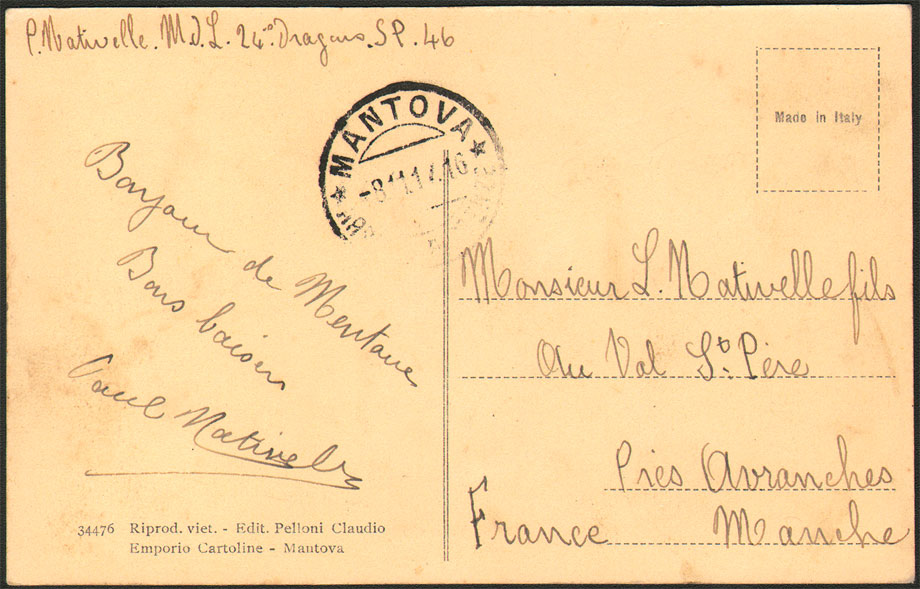 P. Nativelle. M.d.L. 24e. Dragons. S.P. 46
★ MANTOVA ★
-8.11.17.16
Made in Italy
Bonjour de Mentoue
Bons baisers
Paul Nativelle
Monsieur L. Nativelle fils
Au Val St. Père
Près Avranches
France Manche
34476 Riprod. viet. - Edit. Pelloni Claudio
Emporio Cartoline - Mantova